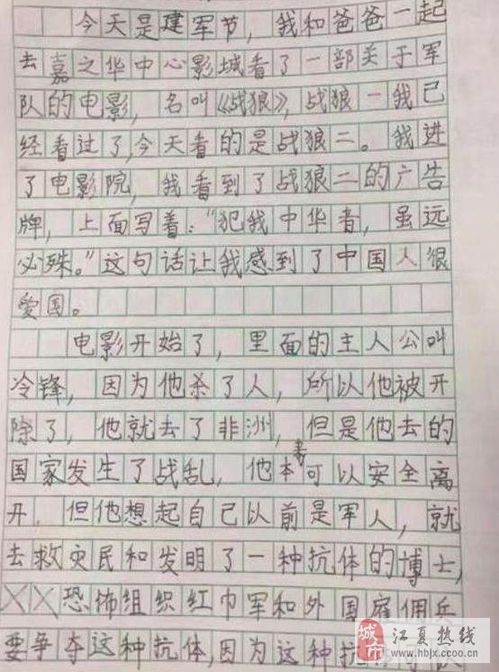 今天是建军节，我和爸爸一起
去嘉之华中心影城看了一部关于军
队的电影，名叫《战狼》，战狼一我已
经看过了，今天看的是战狼二。我进
了电影院，我看到了战狼二的广告
牌，上面写着：“犯我中华者，虽远
必殊。”这句话让我感到了中国人很
爱国。
电影开始了，里面的主人公叫
冷锋，因为他杀了人，所以他被开
除了，他就去了非洲，但是他去的
国家发生了战乱，他本来可以安全离
开，但他想起自己以前是军人，就
去救灾民和发明了一种抗体的博士，
××恐怖组织红巾军和外国雇佣兵
要争夺这种抗体，因为这种抗
城市 江夏热线
www.hbjx.ccoo.cn